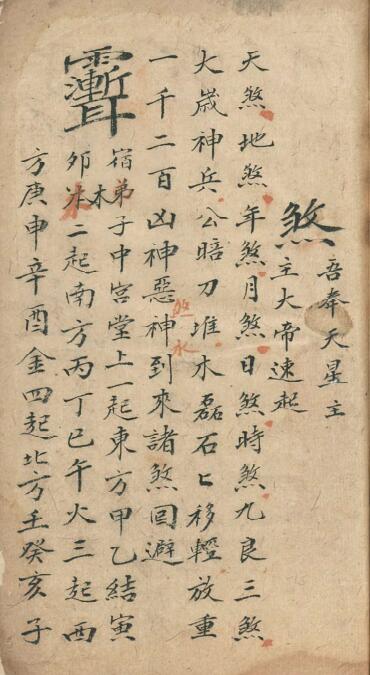 煞
吾奉天星主
主大帝速起
天煞地煞年煞月煞日煞時煞九良三煞
大歲神兵公暗刀堆木磊石匕移輕放重
一千二百凶神惡神到來諸煞囬避
煞水
宿弟子中宮堂上一起東方甲乙結寅
卯木二起南方丙丁巳午火三起西
方庚申辛酉金四起北方壬癸亥子